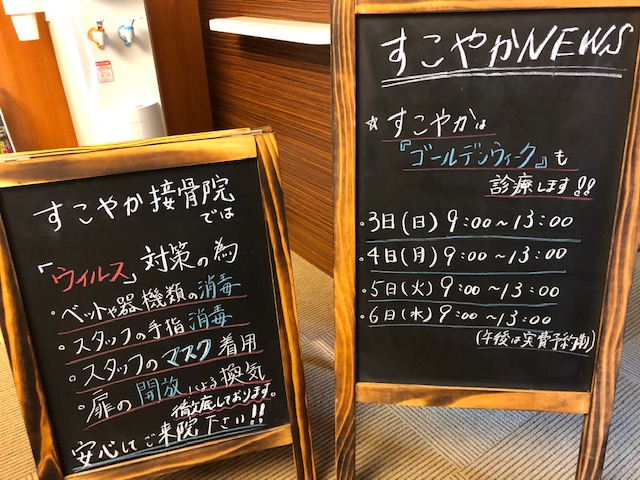 すこやか接骨院
では
「ウィルス」対策の為
・ベットや器機類の消毒
・スタッフの手指消毒
・スタッフのマスク着用
・扉の開放による換気
徹底しております。
安心してご来院下さい!!
すこやかNEWS
☆すこやかは
『ゴールデンウィーク』も
診療します!!
・3日(日) 9:00~13:00
・4日(月) 9:00~13:00
・5日(火) 9:00~13:00
・6日(水) 9:00~13:00
(午後は実費予約制)